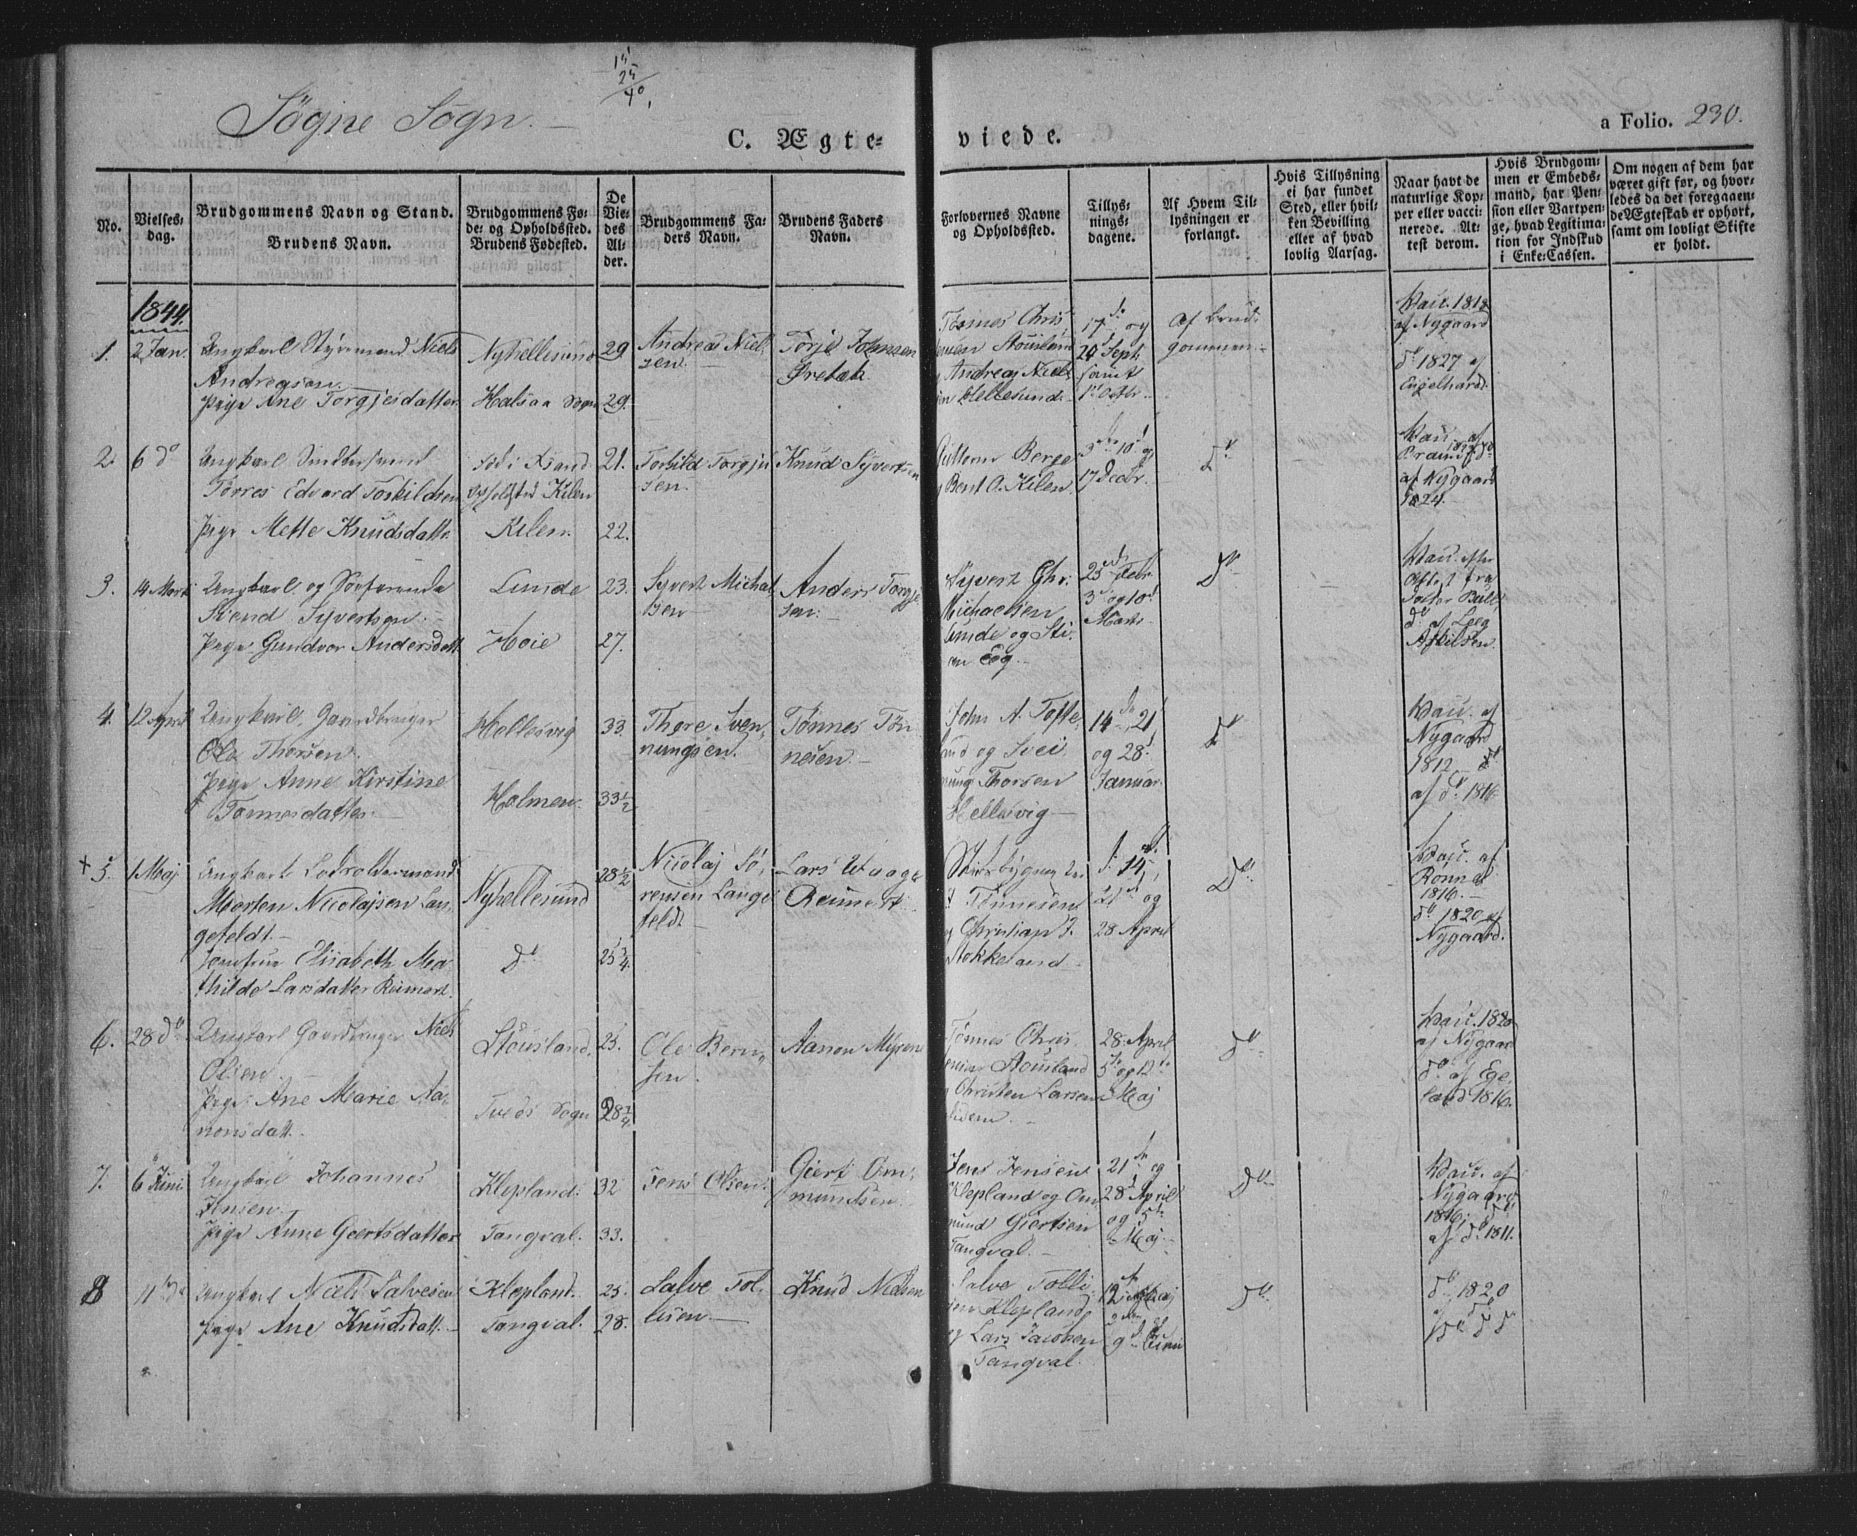 15
25
40
Søgne Sogn.
C. Ægte=
viede.
a Folio. 230.
No.
Vielses-
dag.
Brudgommens Navn og Stand.
Brudens Navn.
Brudgommens Fø-
de- og Opholdssted.
Brudens Fødested.
De
Vie-
des
Al-
der.
Brudgommens Fa-
ders Navn.
Brudens Faders
Navn.
Forlovernes Navne
og Opholdssted.
Tillys-
nings-
dagene.
Af Hvem Til-
lysningen er
forlangt.
Hvis Tillysning
ei har fundet
Sted, eller hvil-
ken Bevilling
eller af hvad
lovlig Aarsag.
Naar havt de
naturlige Kop-
per eller vacci-
nerede. At-
test derom.
Hvis Brudgom-
men er Embeds-
mand, har Pen-
sion eller Vartpen-
ge, hvad Legitima-
tion for Indskud
i Enke-Cassen.
Om nogen af dem har
været gift før, og hvor-
ledes da det foregaaen-
de Ægteskab er ophørt,
samt om lovligt Skifte
er holdt.
1844.
1. 2 Jan. Ungkarl Styrmand Niels
Andreasen.
Pige Ane Torgjesdatter
Nyhellesund
Halsaa Sogn
29
29.
Andreas Niel-
sen.
Torje Johnsen
Tønnes Chris-
tensen Stousland
Andreas Niels-
Hellesund.
17d og
24 Sept.
samt
1 Octbr.
Af Brud-
gommen.
Vac. 1818
af Nygaard
do 1827 af
Engelhard.
2. 6 do Ungkarl
Tørres Edvard Torkildsen
Pige Mette Knudsdatter
Født i Xsand
Opholdsted Kilen
Kilen.
21.
22.
Torkild Torgju-
sen.
Knud Syvertsen
Guttorm Berge
Bent O. Kilen.
3 10 og
17 Decbr.
do
Vac. af
af Nygaard
1824.
3. 14 Marts Ungkarl og Søefarende
Svend Syvertsen.
Pige Gundvor Andersdatt.
Lunde
Høie
23.
27.
Syvert Michal-
sen
Anders Torgje-
sen.
Syvert Chr.
Michaelsen
Lunde og Sti-
an Eeg.
25 Febr.
3 og 10
Marts
do
Vac. efter
Attest fra
Pastor
do af
Askilsen
4. 12 April Ungkarl, Gaardbruger
Ole Thorsen.
Pige Anne Kirstine
Tønnesdatter.
Hellesvig
Holmen.
33.
33 1/2
Thore Sven-
nungsen.
Tønnes Tøn-
nesen.
John A. Tofte-
land og Svei-
nung Thorsen
Hellesvig
14, 21
og 28
Januar.
do
Vac. af
Nygaard
1812 do
af do 1816.
+ 5. 1 Maj Ungkarl Lodsoldermand
Morten Nicolajsen Lan-
gefeldt.
Jomfrue Elisabeth Ma-
thilde Larsdatter Reimert.
Nyhellesund
do
28 1/2
25 3/4
Nicolaj Sø-
rensen Lange-
feldt
Lars Waage
Reimert
Skibsbygger
Tønnesen
Christian J.
Stokkeland
14,
21 og
28 April
do
Vac. af
Rønne
1816.
do 1820 af
Nygaard.
6. 28 do Ungkarl Gaardbruger Niels
Olsen.
Pige Ane Marie Aa-
nonsdatt.
Stousland.
Tveds Sogn
25.
28 1/4
Ole Bern-
sen.
Aanon Myren
Tønnes Chris-
tensen Stousland
Christen Larsen
28 April
5 og 12
Maj
do
Vac. 1820
af Nygaard
do af Ege-
land 1816.
7. 6 Juni Ungkarl Johannes
Jensen.
Pige Anne Geertsdatter
Klepland.
Tangval.
32
33.
Jens Olsen.
Giert Om-
mundsen.
Jens Jensen
Klepland og Om-
mund Giertsen
Tangval.
21 og
28 April
og 5
Maj.
do
Vac. af
Nygaard
1816; do
af do 1811.
8 11 do Ungkarl Niels Salvesen
Pige Ane Knudsdatt.
Klepland.
Tangval.
25.
28.
Salve Tol-
lisen.
Knud Nielsen
Salve Tolli-
sen Klepland
og Lars Jacobsen
Tangval.
12 Maj
2 og
9 Juni
do
do 1820
af do